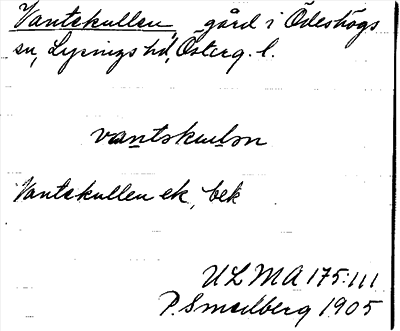 Vantskullen, gård i Ödeshögs
sn, Lysings hd, Österg. l.
vantskulən
Vantskullen ek, bek
ULMA 175:111
P. Smedberg 1905